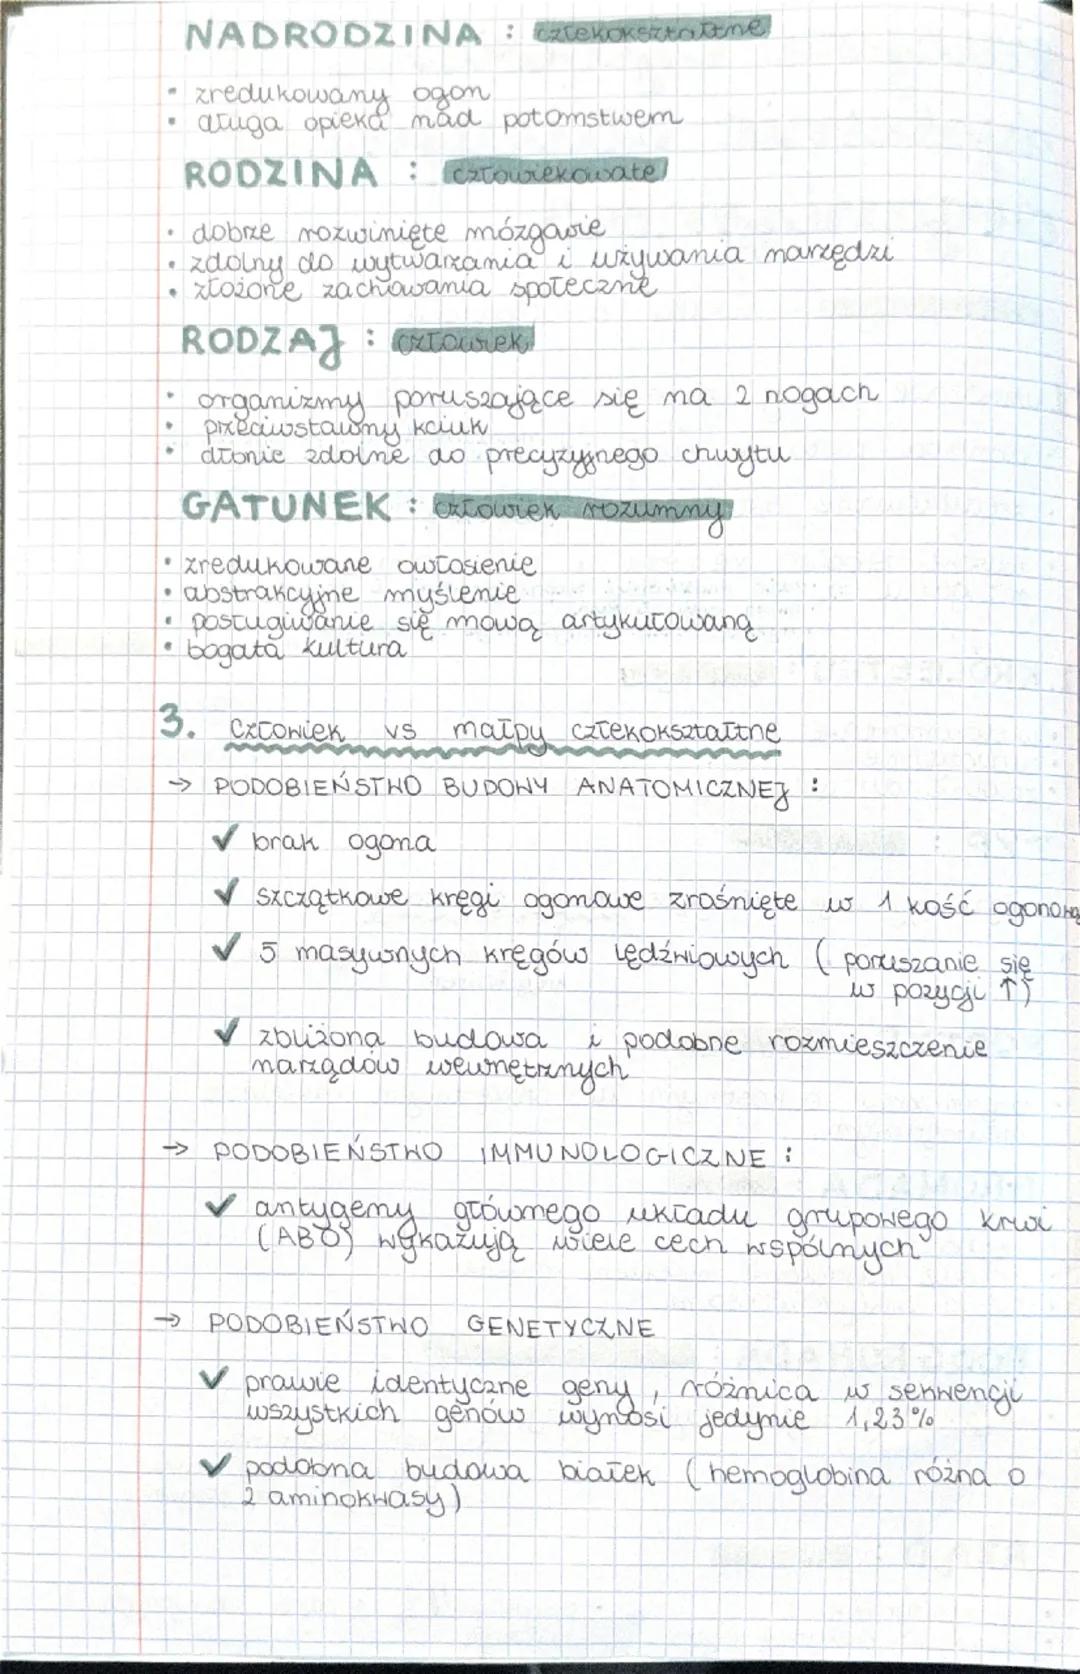 NADRODZINA : człekokształtne
• zredukowany ogon
• długa opieka nad potomstwem
RODZINA : człowiekowate
• dobrze rozwinięte mózgowie
• zdolny do wytwarzania i używania narzędzi
• złożone zachowania społeczne
RODZAJ : człowiek
• organizmy poruszające się na 2 nogach
• przeciwstawny kciuk
• dłonie zdolne do precyzyjnego chwytu
GATUNEK : człowiek rozumny
• zredukowane owłosienie
• abstrakcyjne myślenie
• posługiwanie się mową artykułowaną
• bogata kultura
3. Człowiek vs małpy człekokształtne
→ PODOBIEŃSTWO BUDOWY ANATOMICZNEJ :
✓ brak ogona
✓ szczątkowe kręgi ogonowe zrośnięte w 1 kość ogonową
✓ 5 masywnych kręgów lędźwiowych ( poruszanie się
w pozycji ↑)
✓ zbliżona budowa i podobne rozmieszczenie
narządów wewnętrznych
→ PODOBIEŃSTWO IMMUNOLOGICZNE :
✓ antygeny głównego układu grupowego krwi
(ABO) wykazują wiele cech wspólnych
→ PODOBIEŃSTWO GENETYCZNE
✓ prawie identyczne geny , różnica w sekwencji
wszystkich genów wynosi jedynie 1,23%
✓ podobna budowa białek ( hemoglobina różna o
2 aminokwasy )